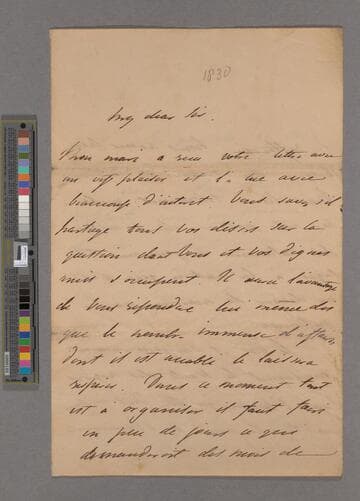 1830
My dear Sir.
Mon mari a reçu votre lettre avec
un vif plaisir et l'a lue avec
beaucoup d'intéret Vous savez s'il
partage tous vos désirs sur la
question dont vous et vos dignes
amis s'occupent Il aura l'avantage
de vous répondre lui même dès
que le nombre immense d'affaires
dont il est accablé le laissera
respirer. Dans ce moment tout
est à organiser il faut faire
en peu de jours ce qui
demanderoit des mois de